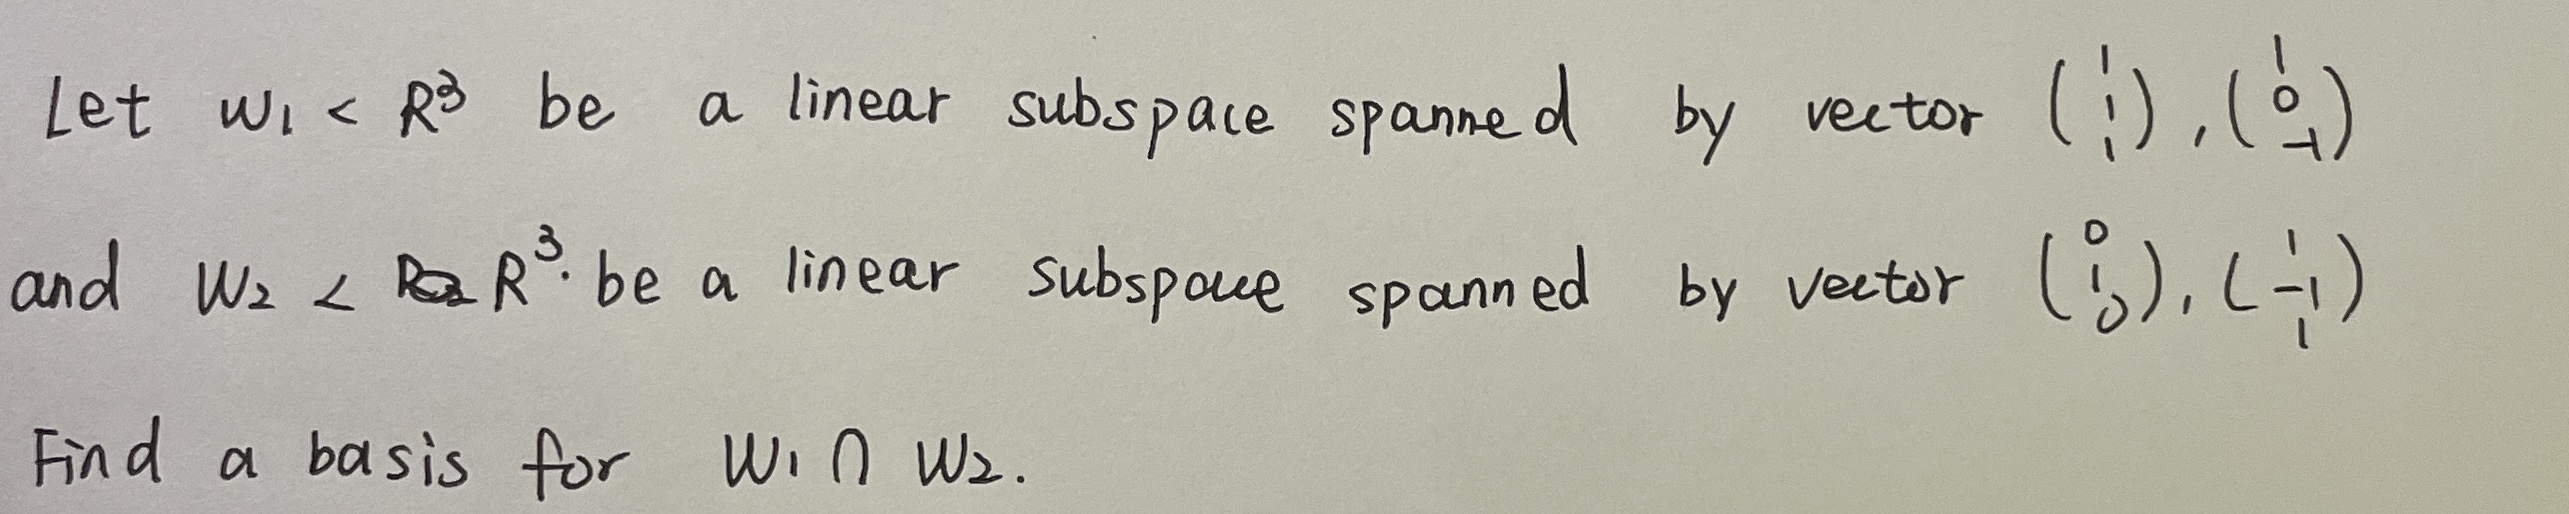 Let W₁ < R³ be a linear subspace spanned by vector (1 1 1), (1 0 -1)
and W₂ < R³. be a linear subspace spanned by vector (0 1 0), (1 -1 1)
Find a basis for W₁ ∩ W₂.